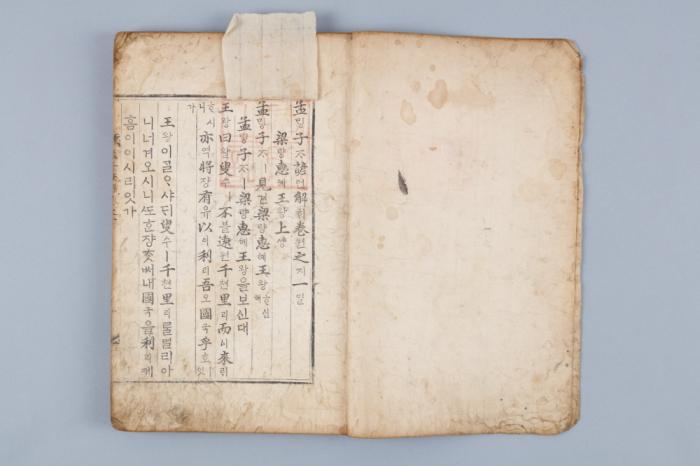 孟ᄆᆡᆼ子ᄌᆞ諺언解ᄒᆡ卷권之지一일
梁량惠혜王왕上샹
孟ᄆᆡᆼ子ᄌᆞㅣ見견梁량惠혜王왕ᄒᆞ신대
孟ᄆᆡᆼ子ᄌᆞㅣ梁량惠혜王왕을보신대
王왕曰왈叟수ㅣ不블遠원千쳔里리而이來ᄅᆡ
ᄒᆞ시니亦역將쟝有유以이利리吾오國국乎호ㅣ잇
가
王왕이ᄀᆞᆯᄋᆞ샤ᄃᆡ叟수ㅣ千쳔里리ᄅᆞᆯ멀리아
니너겨오시니ᄯᅩᄒᆞᆫ쟝ᄎᆞᆺᄡᅥ내國국을利리케
ᄒᆞᆷ이이시리잇가